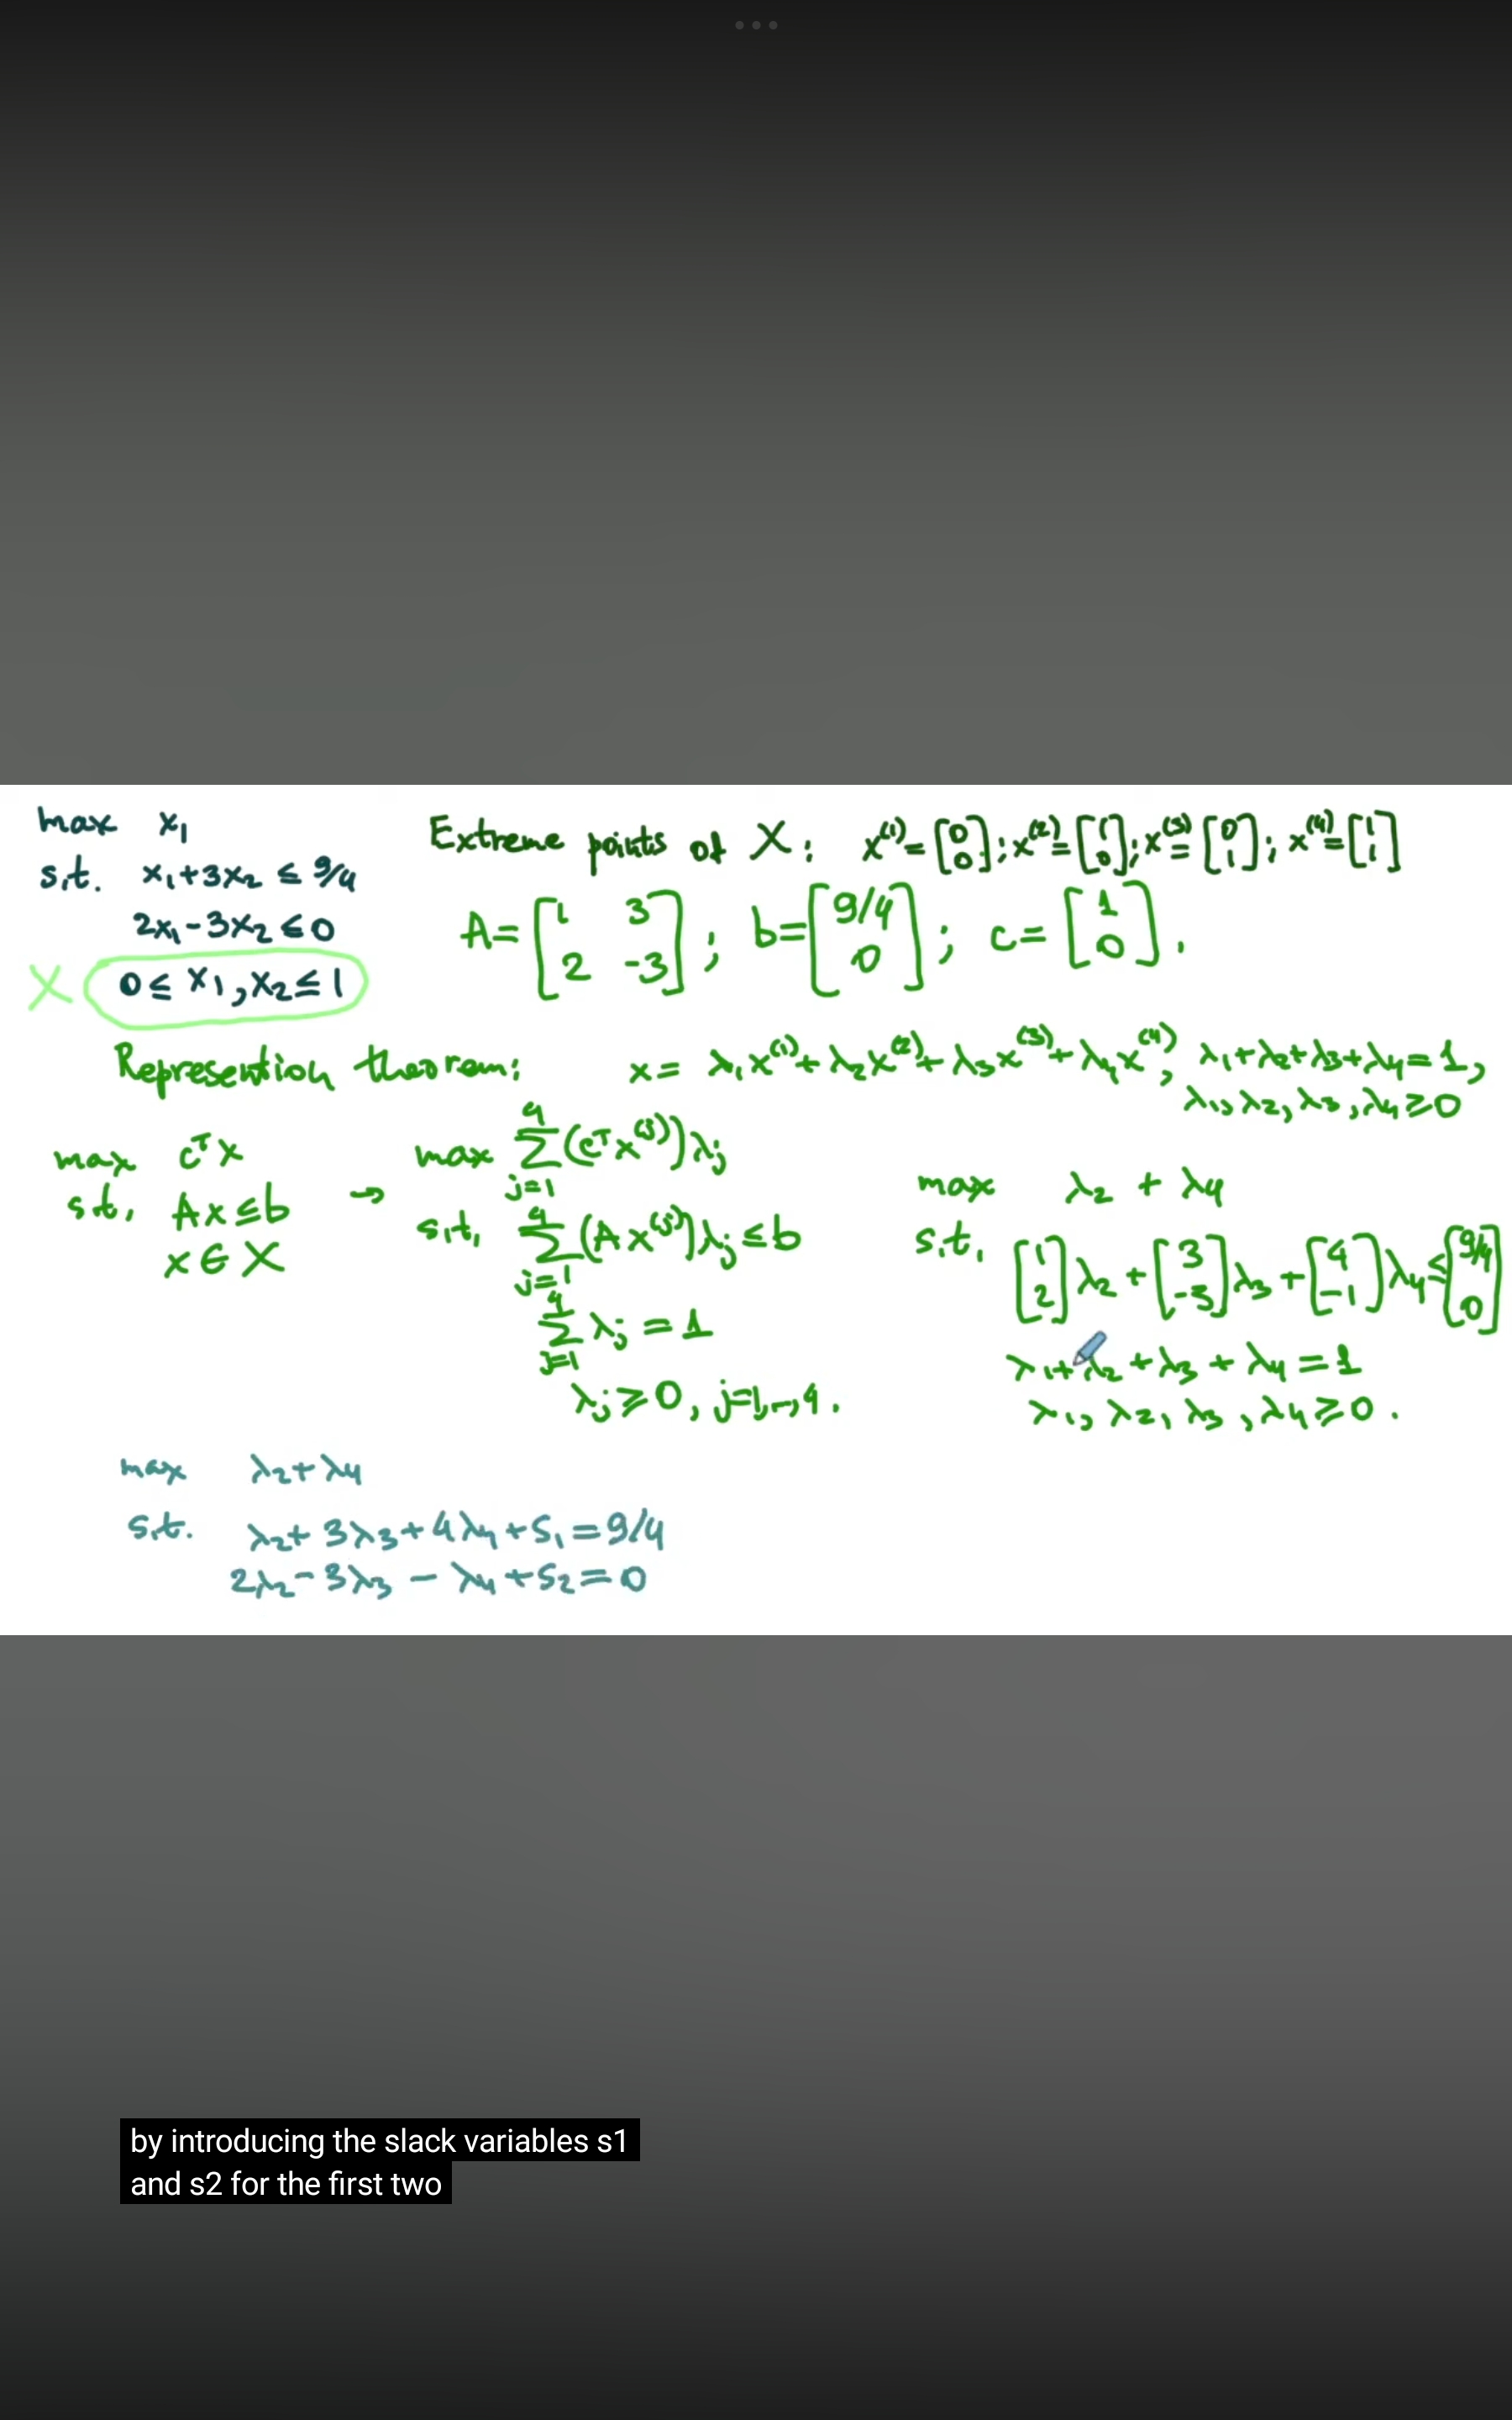 max x₁
s.t. x₁+3x₂ ≤ 9/4
2x₁-3x₂ ≤ 0
X 0 ≤ x₁,x₂ ≤ 1
Extreme points of X: x⁽¹⁾=[0 0]; x⁽²⁾=[1 0]; x⁽³⁾=[0 1]; x⁽⁴⁾=[1 1]
A=[1 3 2 -3]; b=[9/4 0]; c=[1 0].
Represention theorem: x = λ₁x⁽¹⁾+λ₂x⁽²⁾+λ₃x⁽³⁾+λ₄x⁽⁴⁾, λ₁+λ₂+λ₃+λ₄=1,
λ₁,λ₂,λ₃,λ₄≥0
max cᵀx
s.t. Ax≤b
x∈X
→ max Σ_{j=1}^{4}(cᵀx⁽ʲ⁾)λⱼ
s.t. Σ_{j=1}^{4}(Ax⁽ʲ⁾)λⱼ≤b
Σ_{j=1}^{4}λⱼ=1
λⱼ≥0, j=1,…,4.
max λ₂+λ₄
s.t. [1 2]λ₂+[3 -3]λ₃+[4 -1]λ₄≤[9/4 0]
λ₁+λ₂+λ₃+λ₄=1
λ₁,λ₂,λ₃,λ₄≥0.
max λ₂+λ₄
s.t. λ₂+3λ₃+4λ₄+s₁=9/4
2λ₂-3λ₃-λ₄+s₂=0
by introducing the slack variables s1
and s2 for the first two